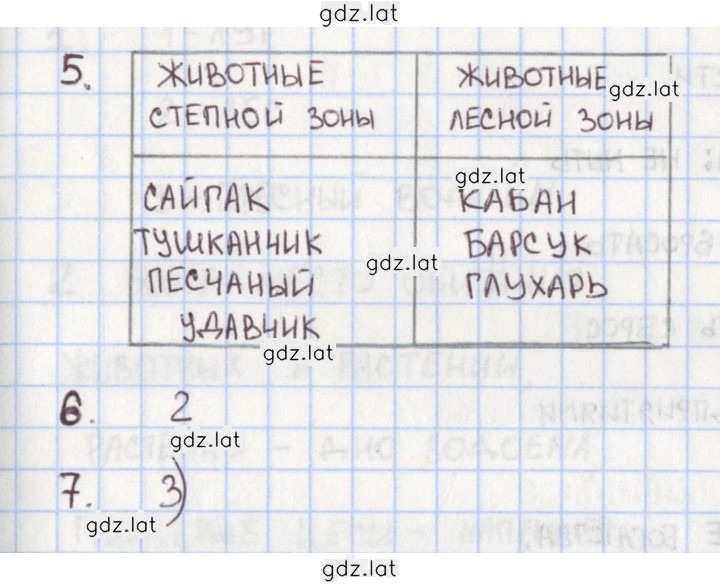 gdz.lat
5. ЖИВОТНЫЕ СТЕПНОЙ ЗОНЫ
ЖИВОТНЫЕ ЛЕСНОЙ ЗОНЫ
gdz.lat
gdz.lat
САЙГАК
КАБАН
ТУШКАНЧИК
БАРСУК
gdz.lat
ПЕСЧАНЫЙ
ГЛУХАРЬ
УДАВЧИК
gdz.lat
6. 2
gdz.lat
7. 3)
gdz.lat
gdz.lat